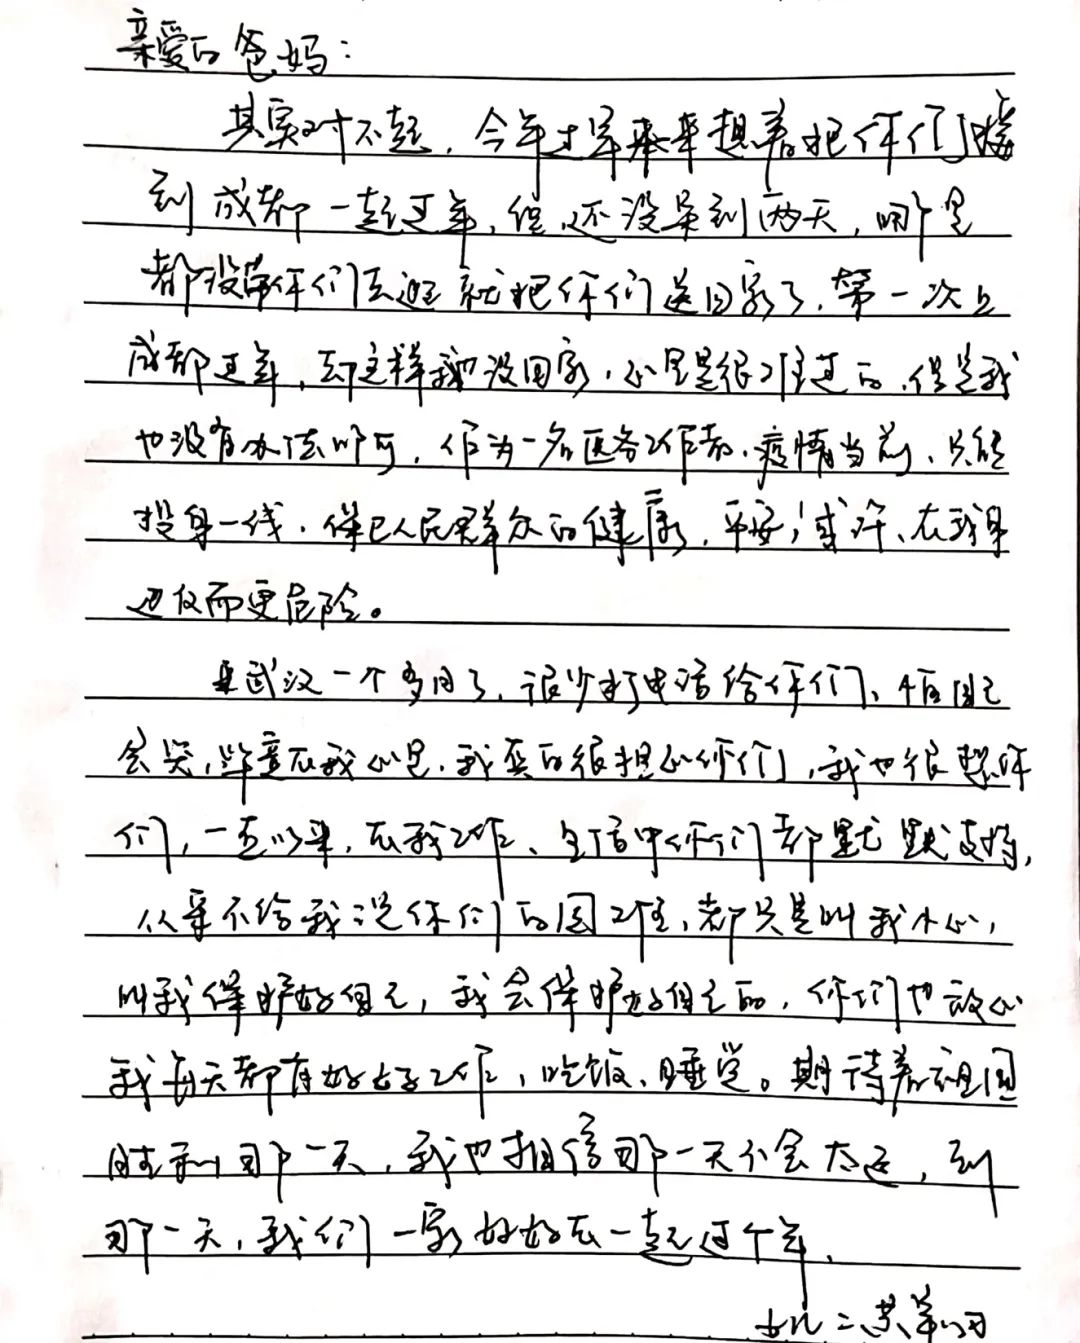 亲爱的爸妈：
其实对不起，今年过年本来想着把你们接
到成都一起过年，但还没来到两天，哪里
都没带你们去逛就把你们送回家了，第一次上
成都过年，却这样我也没回家，心里是很难过的，但是我
也没有办法啊，作为一名医务工作者，疫情当前，只能
投身一线，保已人民群众的健康，平安！或许、在我身
边反而更危险。
来武汉一个多月了，很少打电话给你们、怕自己
会哭，毕竟在我心里，我真的很担心你们，我也很想你
们，一直以来，在我工作、生活中你们都默默支持，
从来不给我说你们的困难，都只是叫我小心，
叫我保护好自己，我会保护好自己的，你们也放心
我每天都有好好工作，吃饭、睡觉。期待着祖国
胜利那一天，我也相信那一天不会太远，到
那一天，我们一家好好在一起过个年，
女儿：